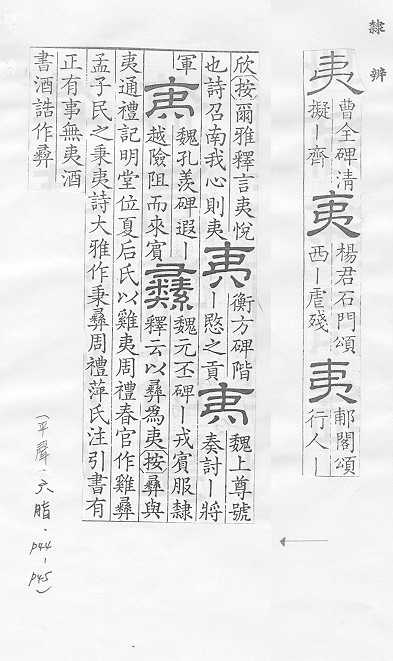 隸辨
夷
曹全碑清
擬ー齊
夷
楊君石門頌
西ー虐殘
夷
郙閣頌
行人ー
欣按爾雅釋言夷悅
也詩召南我心則夷
夷
衡方碑階
ー愍之貢
夷
魏上尊號
奏討ー將
軍
夷
魏孔羨碑遐ー
越險阻而來賓
彝
魏元丕碑ー戎賓服隸
釋云以彝為夷按彝與
夷通禮記明堂位夏后氏以雞夷周禮春官作雞彝
孟子民之秉夷詩大雅作秉彝周禮萍氏注引書有
正有事無夷酒
書酒誥作彝
(平聲·六脂·P44-P45)